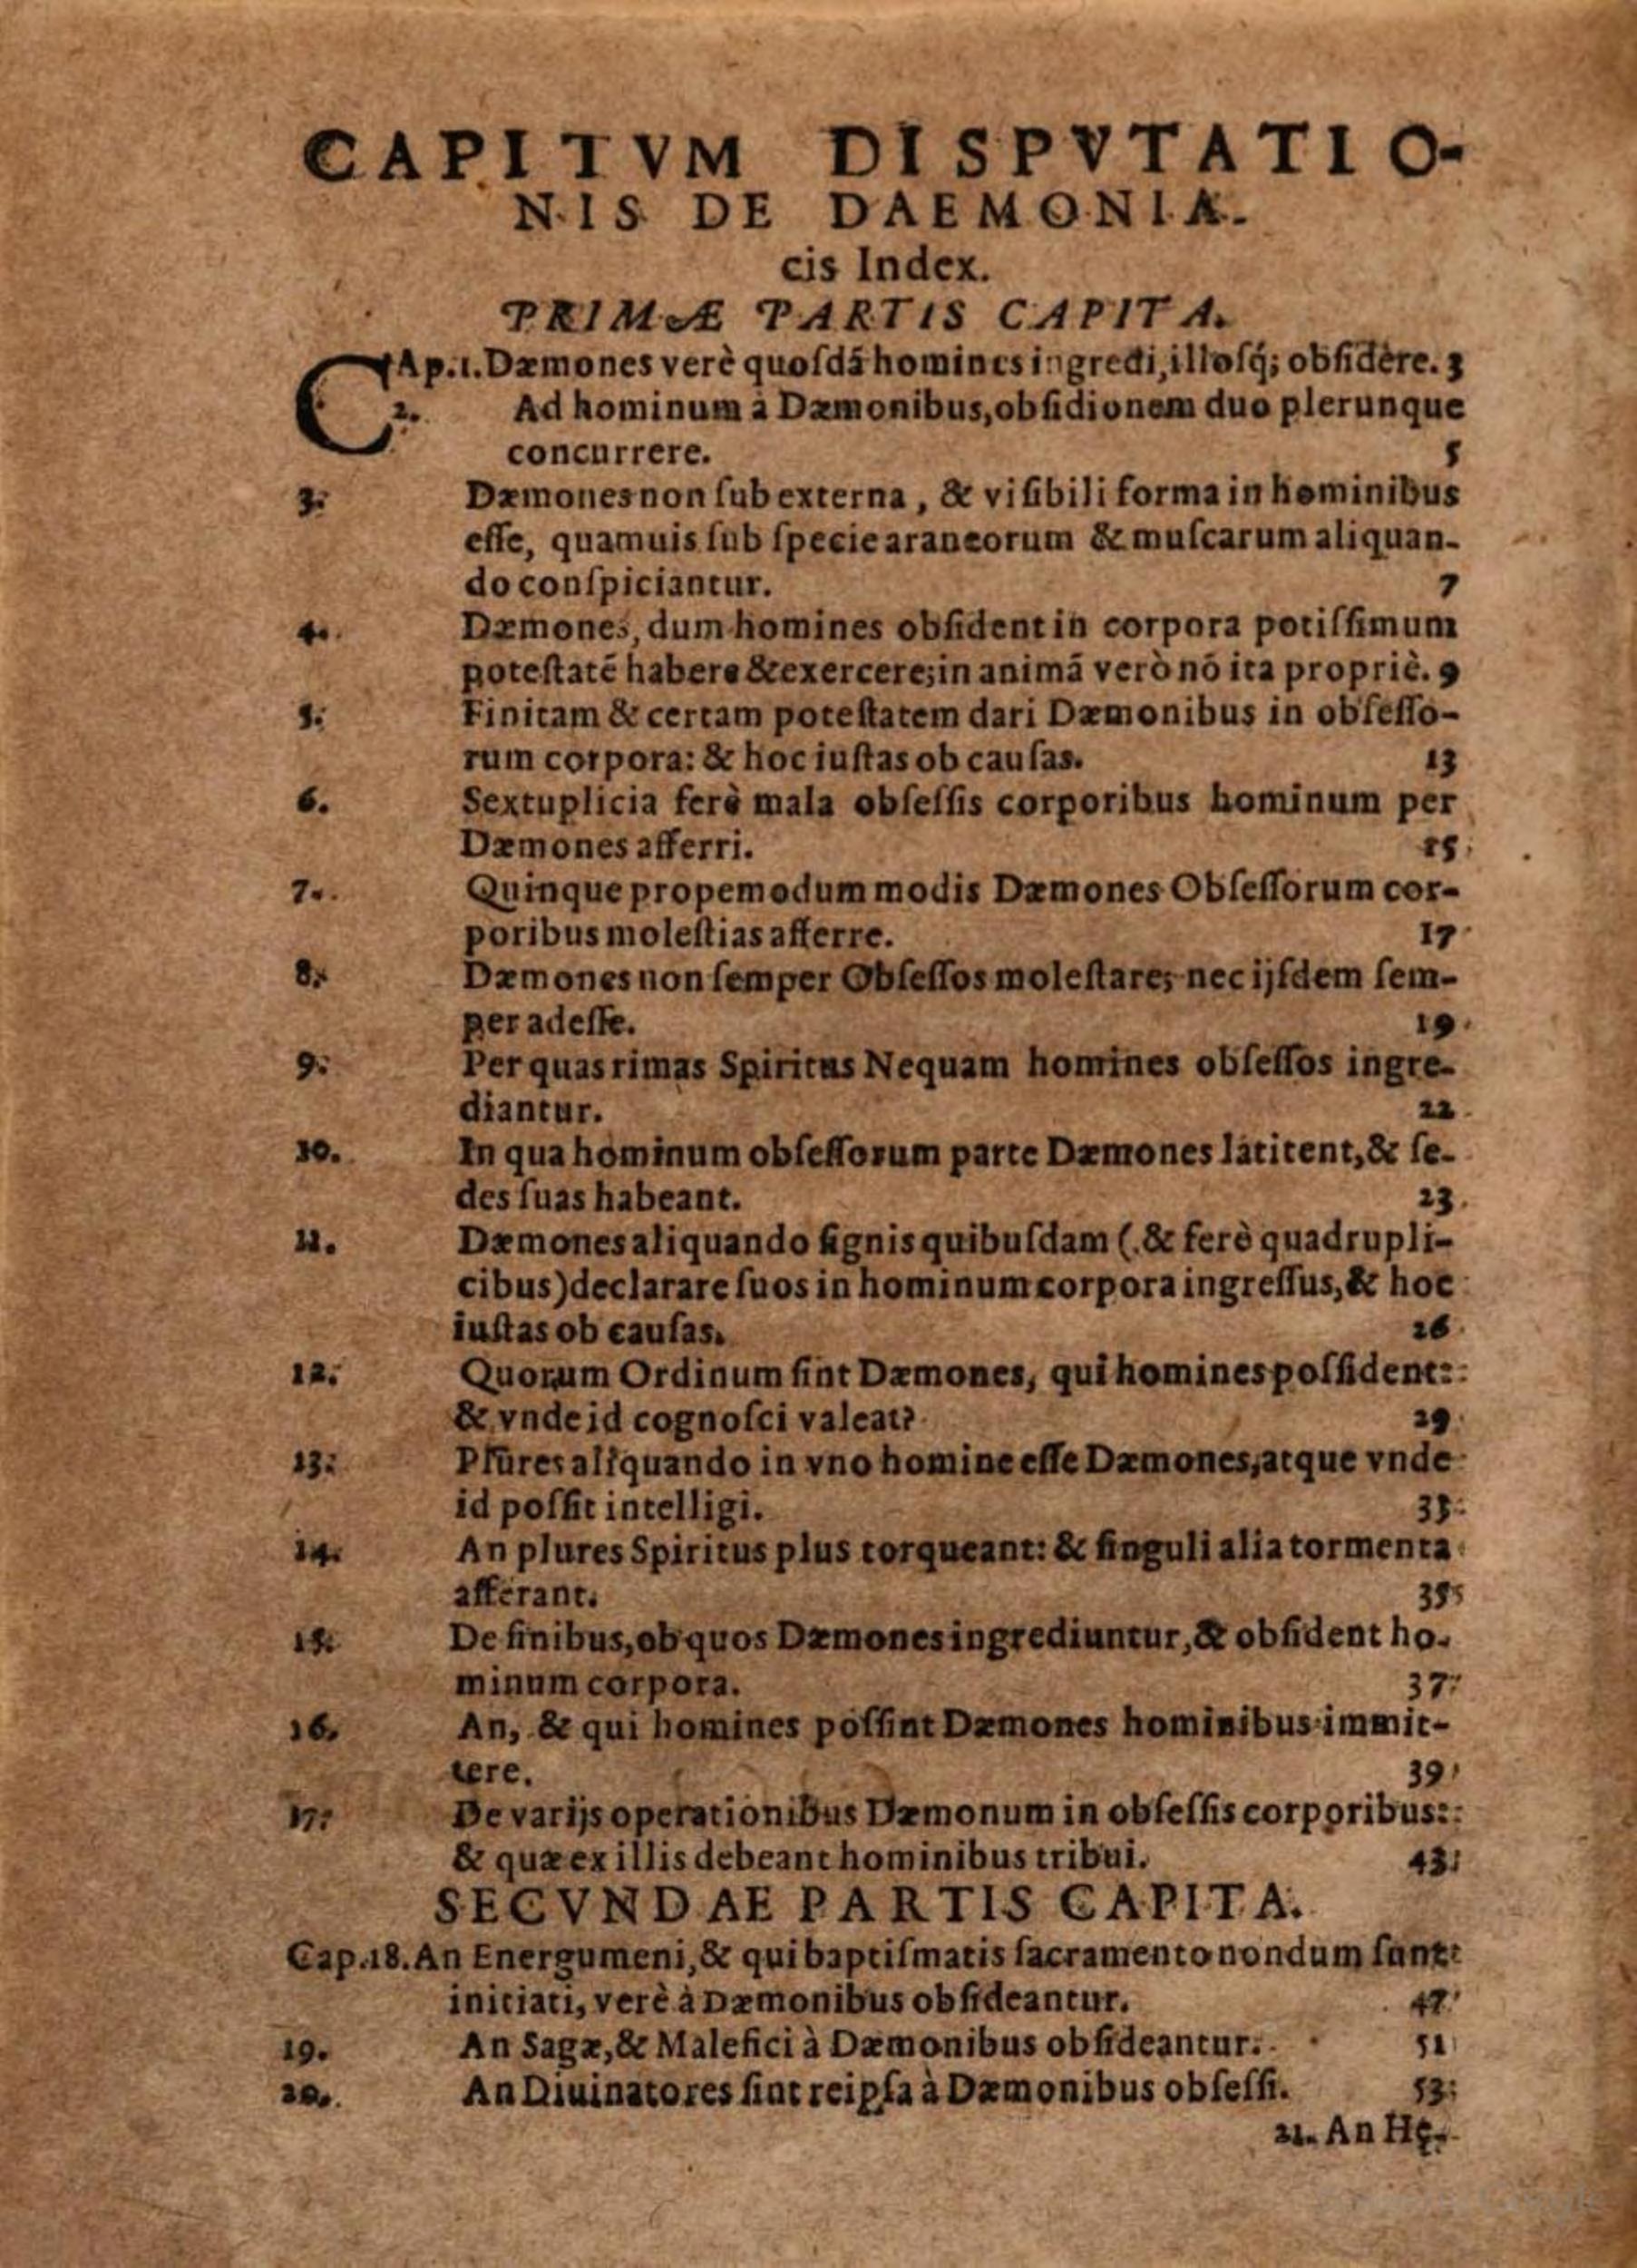 CAPITVM DISPVTATIO-
NIS DE DAEMONIA-
cis Index.
PRIMÆ PARTIS CAPITA.
CAp.1. Dæmones verè quoſdã homines ingredi, illoſq́; obſidère. 3
2. Ad hominum à Dæmonibus, obſidionem duo plerunque
concurrere. 5
3. Dæmones non ſub externa, & viſibili forma in hominibus
eſſe, quamuis ſub ſpecie araneorum & muſcarum aliquan-
do conſpiciantur. 7
4. Dæmones, dum homines obſident in corpora potiſſimum
poteſtatē habere & exercere; in animã verò nō ita propriè. 9
5. Finitam & certam poteſtatem dari Dæmonibus in obſeſſo-
rum corpora: & hoc iuſtas ob cauſas. 13
6. Sextuplicia ferè mala obſeſſis corporibus hominum per
Dæmones afferri. 15
7. Quinque propemodum modis Dæmones Obſeſſorum cor-
poribus moleſtias afferre. 17
8. Dæmones non ſemper Obſeſſos moleſtare; nec ijſdem ſem-
per adeſſe. 19
9. Per quas rimas Spiritus Nequam homines obſeſſos ingre-
diantur. 22
10. In qua hominum obſeſſorum parte Dæmones latitent, & ſe-
des ſuas habeant. 23
11. Dæmones aliquando ſignis quibuſdam (& ferè quadrupli-
cibus) declarare ſuos in hominum corpora ingreſſus, & hoc
iuſtas ob cauſas. 26
12. Quorum Ordinum ſint Dæmones, qui homines poſſident:
& vnde id cognoſci valeat? 29
13. Plures aliquando in vno homine eſſe Dæmones, atque vnde
id poſſit intelligi. 33
14. An plures Spiritus plus torqueant: & ſinguli alia tormenta
afferant. 35
15. De finibus, ob quos Dæmones ingrediuntur, & obſident ho-
minum corpora. 37
16. An, & qui homines poſſint Dæmones hominibus immit-
tere. 39
17. De varijs operationibus Dæmonum in obſeſſis corporibus:
& quæ ex illis debeant hominibus tribui. 43
SECVNDAE PARTIS CAPITA.
Cap.18. An Energumeni, & qui baptiſmatis ſacramento nondum ſunt
initiati, verè à Dæmonibus obſideantur. 47
19. An Sagæ, & Malefici à Dæmonibus obſideantur. 51
20. An Diuinatores ſint reipſa à Dæmonibus obſeſſi. 53
21. An Hę-